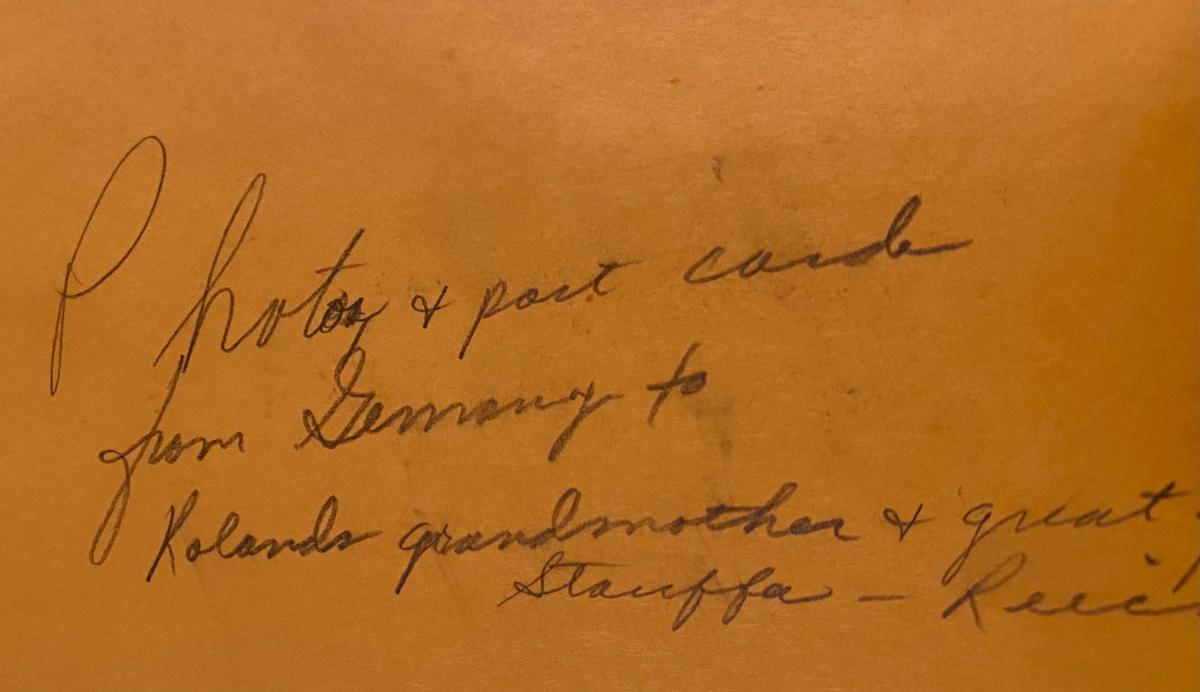 Photos & post cards
from Germany to
Rolands grandmother & great
Stauffa -